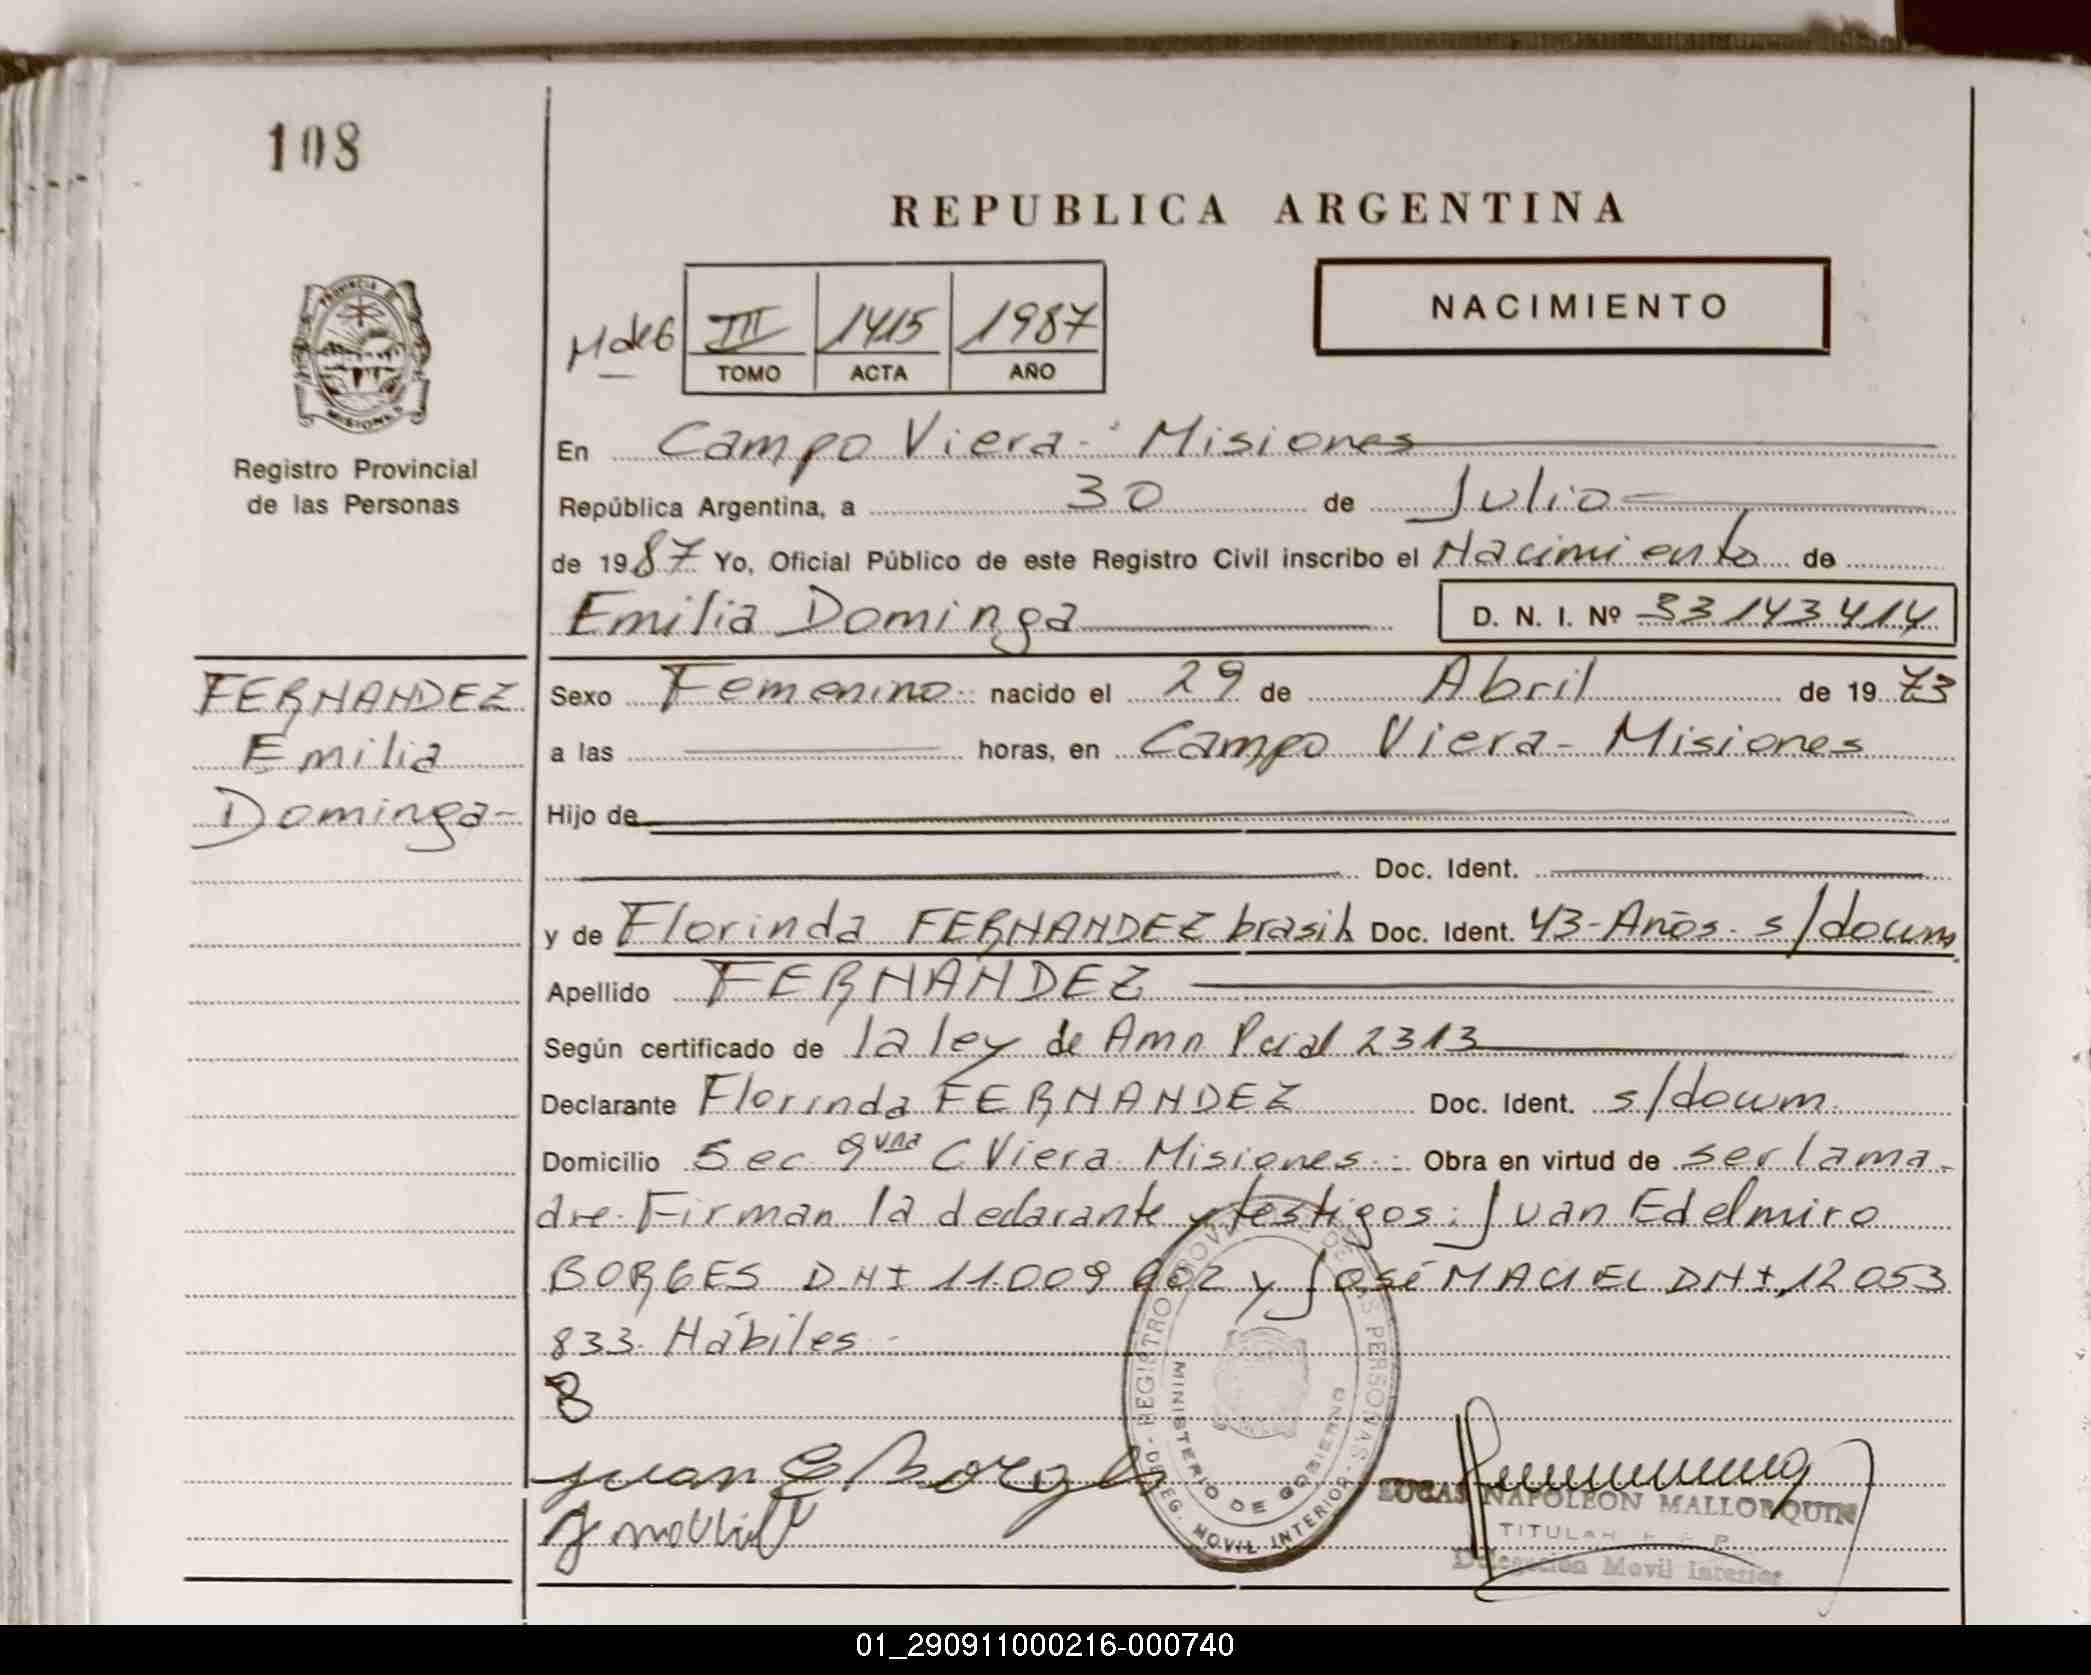 108
REPUBLICA ARGENTINA
PROVINCIA DE
MISIONES
Registro Provincial
de las Personas
NACIMIENTO
M de 6 III 1415 1987
TOMO ACTA AÑO
En Campo Viera - Misiones
República Argentina, a 30 de Julio
de 1987 Yo, Oficial Público de este Registro Civil inscribo el Nacimiento de
Emilia Dominga D. N. I. Nº 33143414
FERNANDEZ
Emilia
Dominga-
Sexo Femenino nacido el 29 de Abril de 1973
a las horas, en Campo Viera - Misiones
Hijo de
Doc. Ident.
y de Florinda FERNANDEZ brasil Doc. Ident. 43-Años. s/docum
Apellido FERNANDEZ
Según certificado de la ley de Amn Pcial 2313
Declarante Florinda FERNANDEZ Doc. Ident. s/docum.
Domicilio Sec 9una C. Viera Misiones Obra en virtud de ser la ma-
dre. Firman la declarante y testigos: Juan Edelmiro
BORGES DNI 11.009 902 y José MACIEL DNI 12 053
833. Hábiles -
Juan E Borges
REGISTRO PROVINCIAL DE LAS PERSONAS
MINISTERIO DE GOBIERNO
DELEG. MOVIL INTERIOR
LUCAS NAPOLEON MALLORQUIN
TITULAR
Delegación Movil Interior
01_290911000216-000740